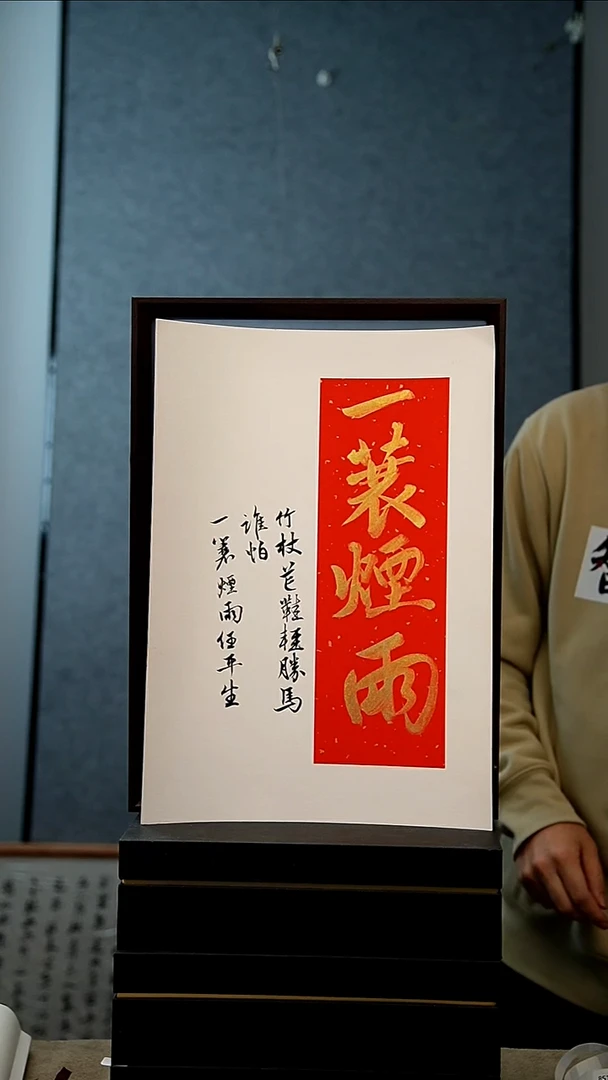 一蓑煙雨
竹杖芒鞋輕勝馬
谁怕
一蓑煙雨任平生